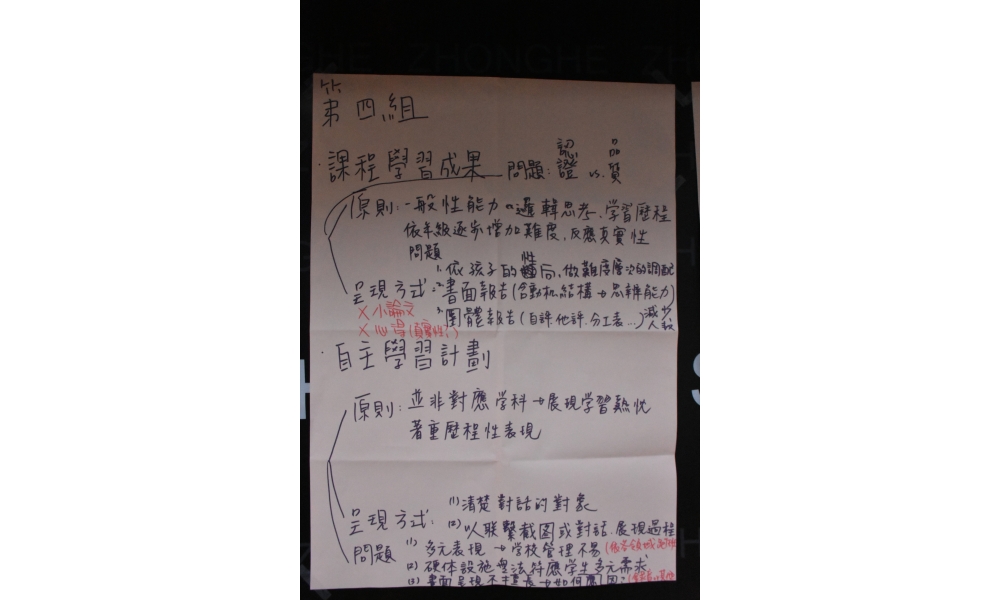 ZHONGHE
第四組
·課程學習成果 問題:認證 vs. 品質
原則:一般性能力 邏輯思考、学習歷程
依年級逐步增加難度,反應真實性
問題
1. 依孩子的性向,做難度層次的調配
呈現方式: 2. 書面報告(含動机、結構→思辨能力)
X 小論文
3. 團體報告(自評、他評、分工表...)減少人数
X 心得(真實性?)
·自主學習計劃
原則:並非對應学科→展現学習熱忱
著重歷程性表現
(1) 清楚對話的對象
呈現方式: (2) 以聯繫截图或對話、展現過程
問題 (1) 多元表現→学校管理不易
(2) 硬体設施無法符應学生多元需求
(3) 書面呈現不擅長→如何鞏固?